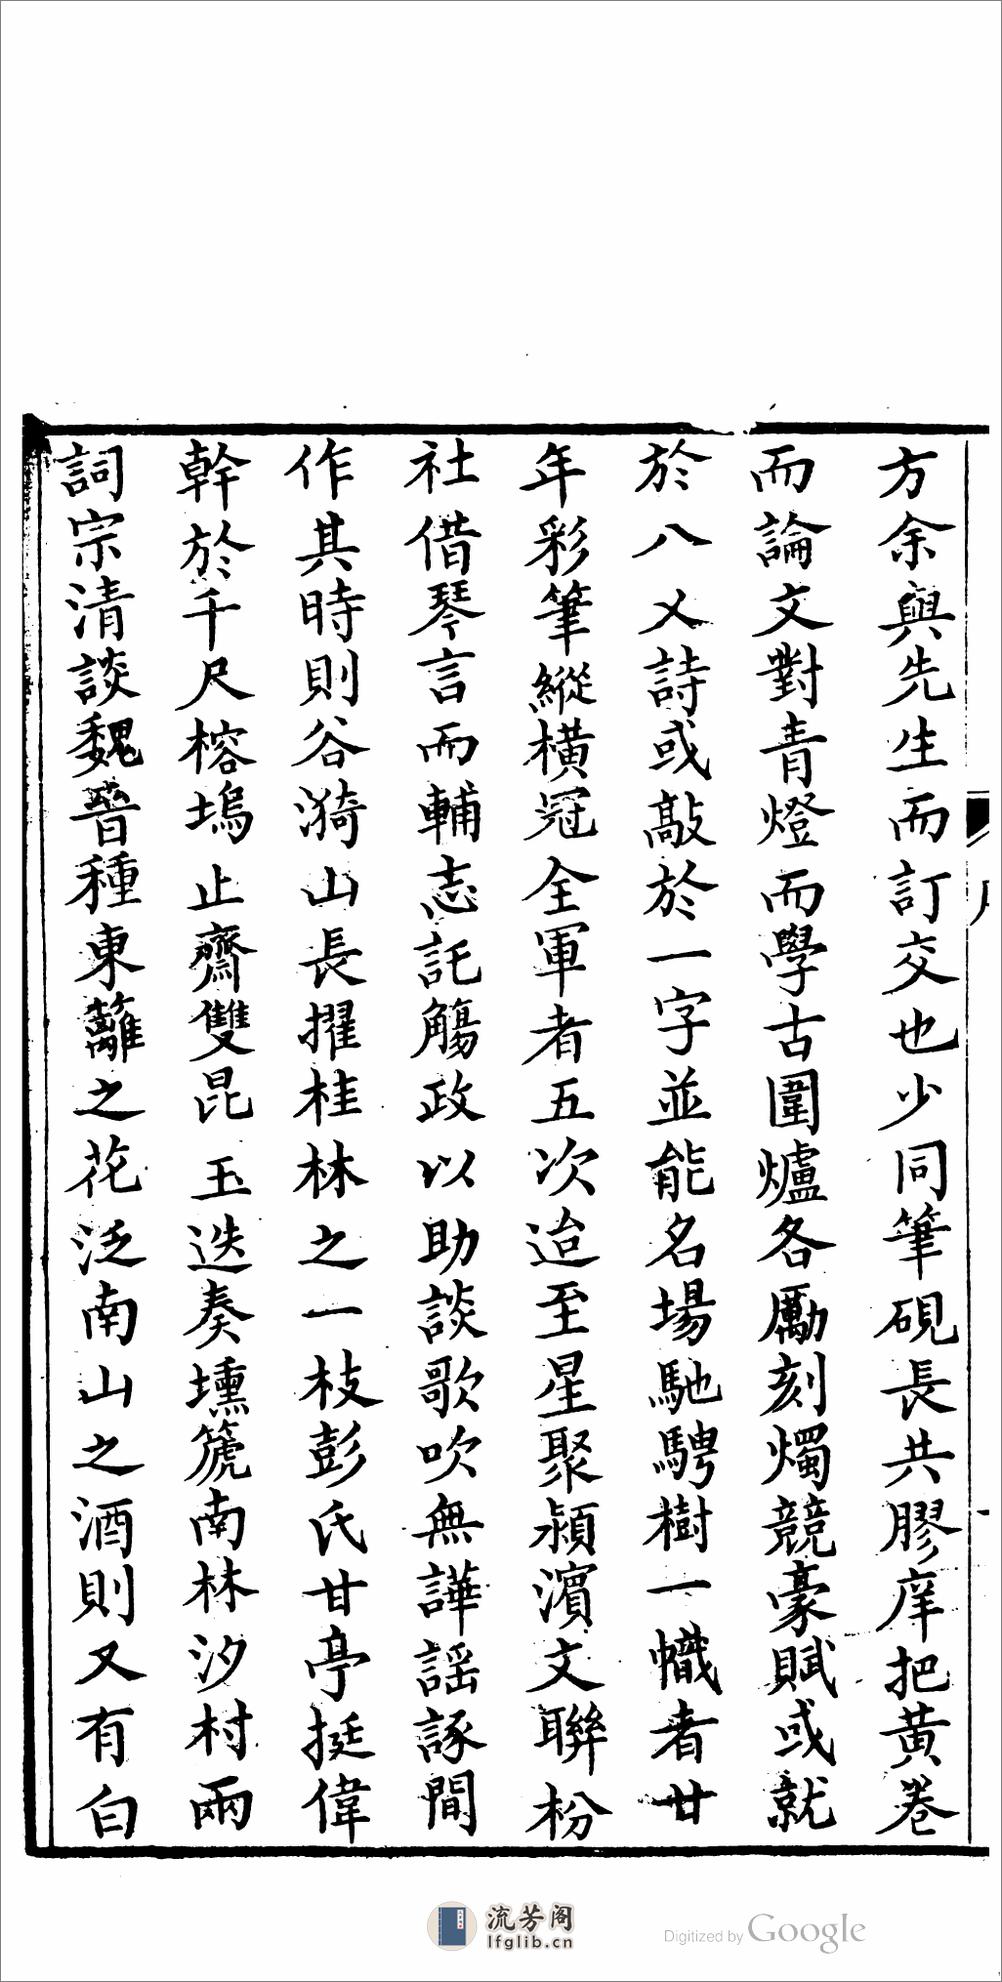 方余與先生而訂交也少同筆硯長共膠庠把黃卷
而論文對青燈而學古圍爐各勵刻燭競豪賦或就
於八乂詩或敲於一字並能名場馳騁樹一幟者廿
年彩筆縱橫冠全軍者五次迨至星聚潁濱文聯枌
社借琴言而輔志託觴政以助談歌吹無譁謡諑間
作其時則谷漪山長擢桂林之一枝彭氏甘亭挺偉
幹於千尺榕塢止齋雙昆玉迭奏壎箎南林汐村兩
詞宗清談魏晉種東籬之花泛南山之酒則又有白
流芳阁
lfglib.cn
Digitized by Google